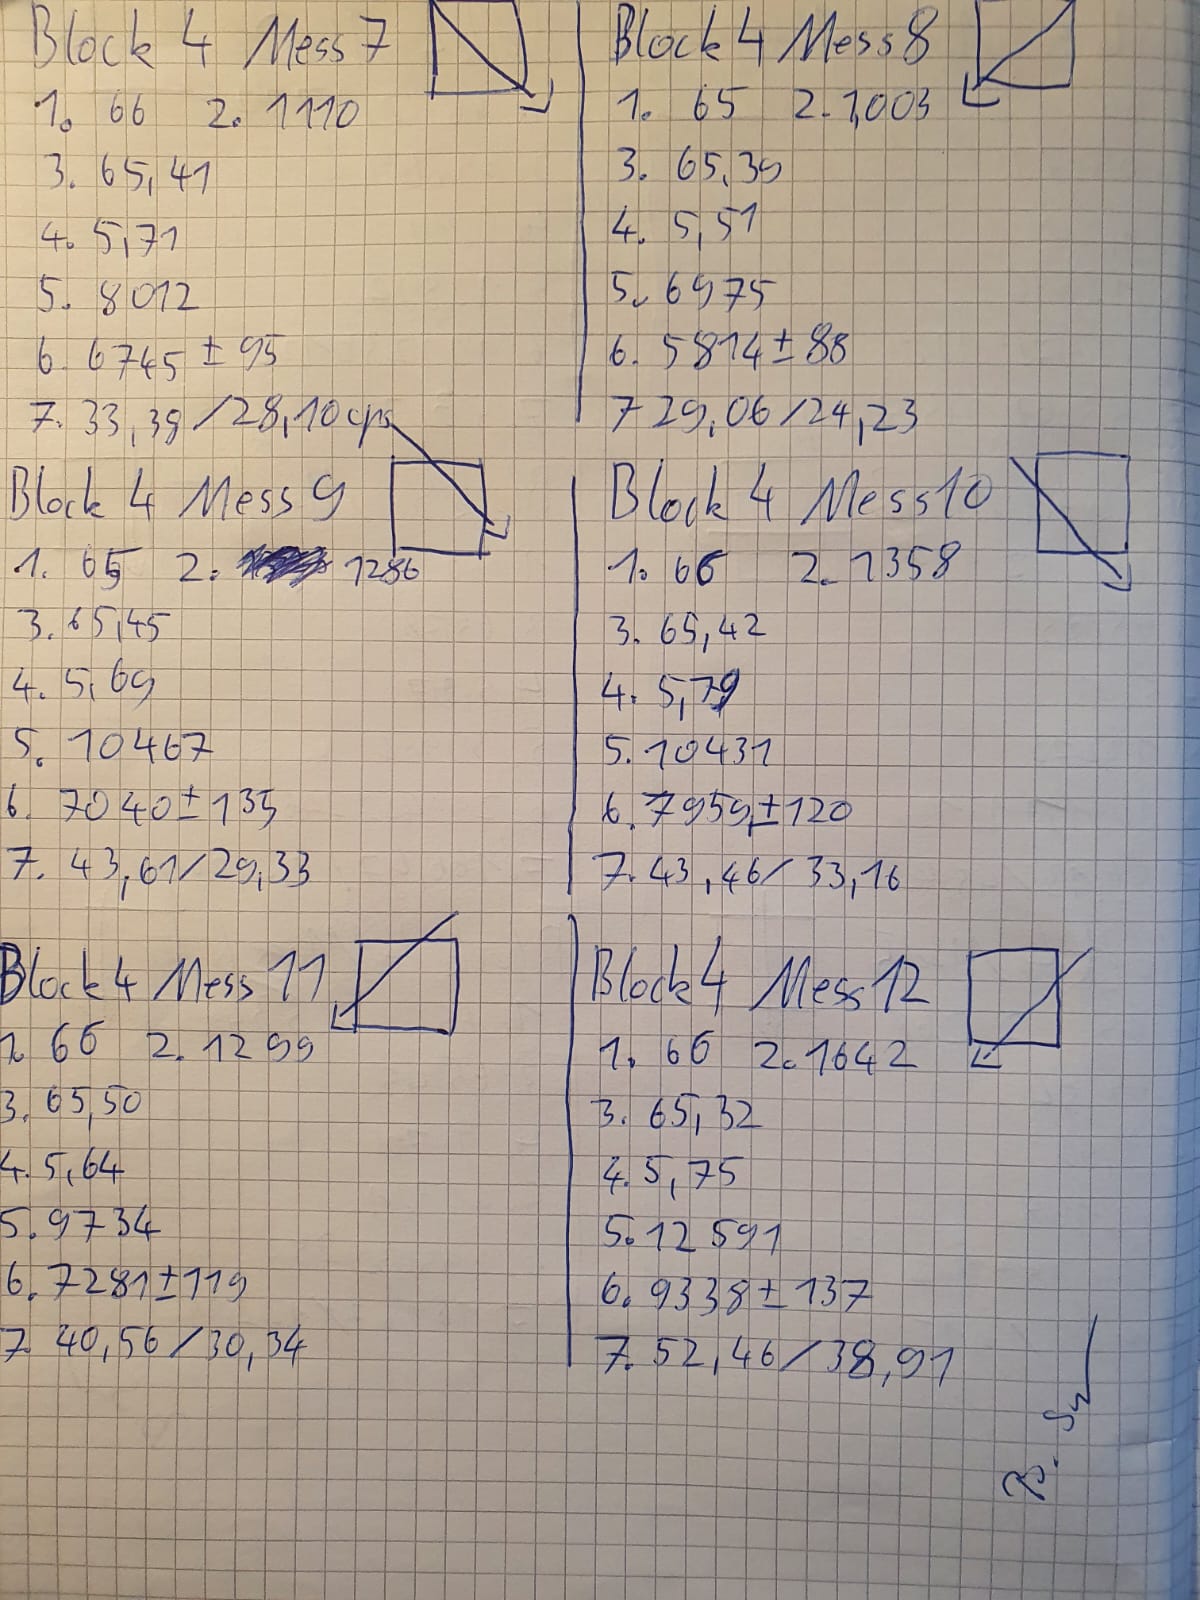 Block 4 Mess 7
1. 66 2. 1110
3. 65,41
4. 5,71
5. 8012
6. 6745 ± 95
7. 33,38 / 28,10 cps
Block 4 Mess 8
1. 65 2. 1,003
3. 65,39
4. 5,51
5. 6975
6. 5814 ± 88
7 29,06 / 24,23
Block 4 Mess 9
1. 65 2. 1286
3. 65,45
4. 5,69
5. 10467
6. 7040 ± 135
7. 43,61 / 29,33
Block 4 Mess 10
1. 66 2. 1358
3. 65,42
4. 5,79
5. 10431
6. 7959 ± 120
7. 43,46 / 33,16
Block 4 Mess 11
1. 66 2. 1299
3. 65,50
4. 5,64
5. 9734
6. 7281 ± 119
7. 40,56 / 30,34
Block 4 Mess 12
1. 66 2. 1642
3. 65,32
4. 5,75
5. 12591
6. 9338 ± 137
7. 52,46 / 38,91